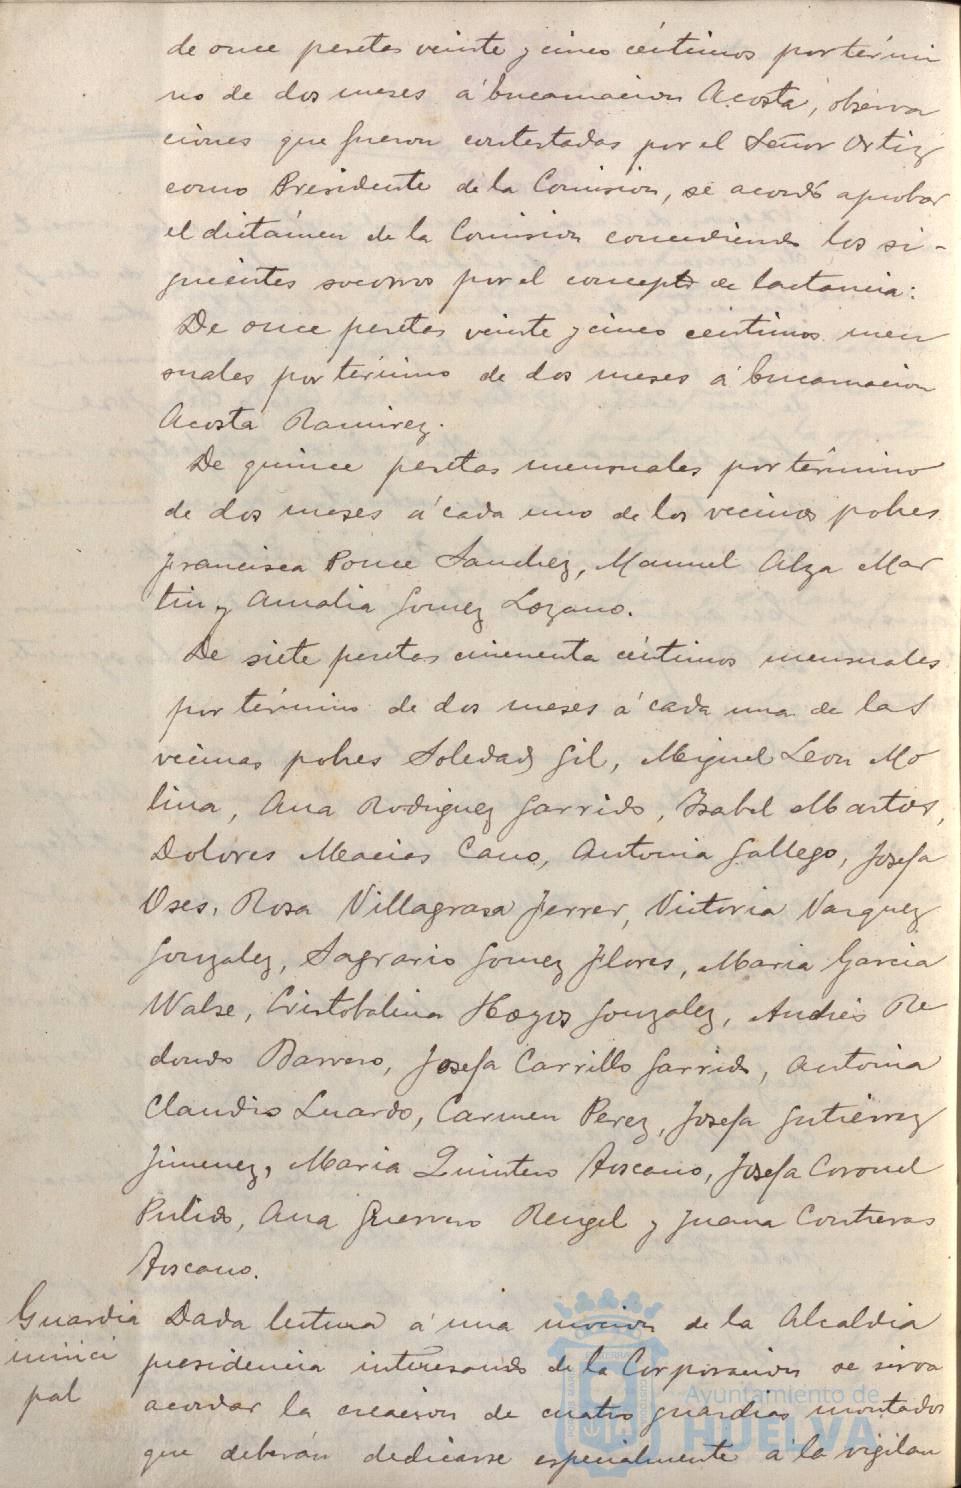 de once pesetas veinte y cinco céntimos por térmi
no de dos meses á Encarnacion Acosta, observa
ciones que fueron contestadas por el Señor Ortiz
como Presidente de la Comision, se acordó aprobar
el dictámen de la Comision concediendo los si-
guientes socorros por el concepto de lactancia:
De once pesetas veinte y cinco centimos men
suales por término de dos meses á Encarnacion
Acosta Ramirez.
De quince pesetas mensuales por término
de dos meses á cada uno de los vecinos pobres
Francisca Ponce Sanchez, Manuel Alza Mar
tin y Amalia Gomez Lozano.
De siete pesetas cincuenta céntimos mensuales
por término de dos meses á cada una de las
vecinas pobres Soledad Gil, Miguel Leon Mo
lina, Ana Rodriguez Garrido, Isabel Martos,
Dolores Macias Cano, Antonia Gallego, Josefa
Oses, Rosa Villagrasa Ferrer, Victoria Vazquez
Gonzalez, Sagrario Gomez Flores, Maria Garcia
Walse, Cristobalina Hoyos Gonzalez, Andrés Re
dondo Barrero, Josefa Carrillo Garrido, Antonia
Claudio Luardo, Carmen Perez, Josefa Gutiérrez
Jimenez, Maria Quintero Toscano, Josefa Coronel
Pulido, Ana Guerrero Rengel y Juana Contreras
Toscano.
Guardia
munici
pal
Dada lectura á una mocion de la Alcaldia
presidencia interesando de la Corporacion se sirva
acordar la creacion de cuatro guardias montados
que deberán dedicarse especialmente á la vigilan
Ayuntamiento de
HUELVA